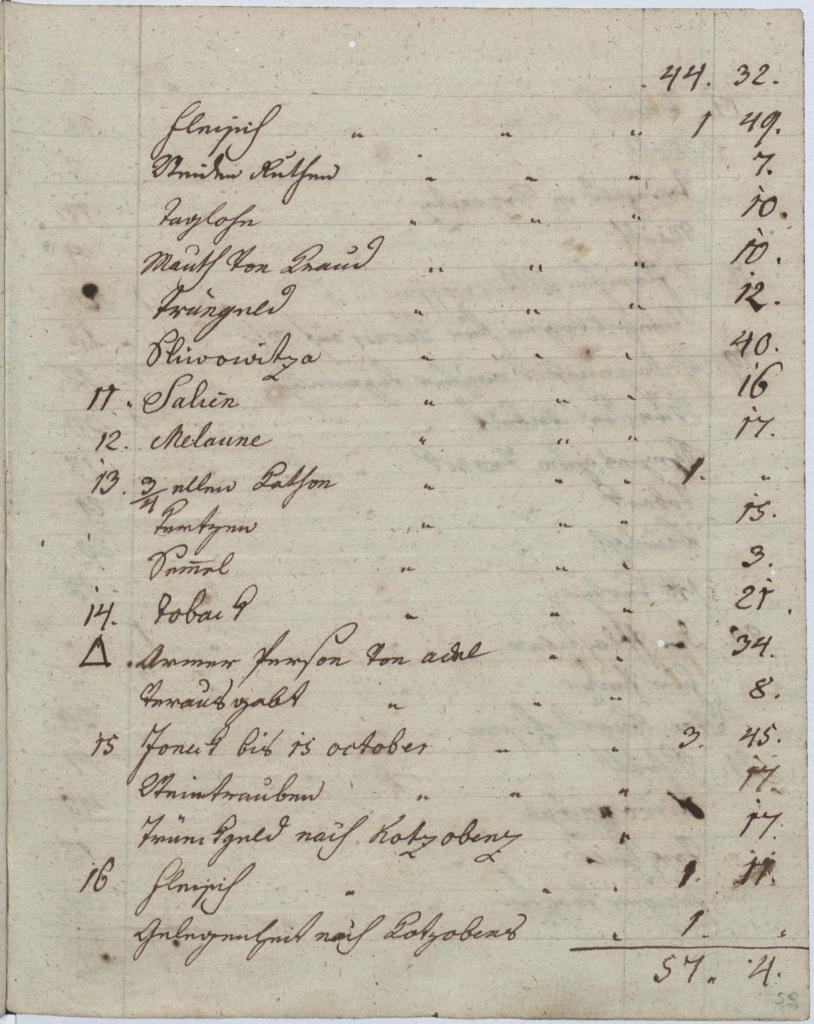 44. 32.
Fleisch " " " 1 49.
Weiden Ruthen " " " 7.
Taglohn " " " 10.
Mauth von Kraud " " " 10.
Trüngeld " " " 12.
Sliwowitza " " " 40.
11. " " " 16
12. Melaune " " " 17.
13. 3/4 ellen Cathon " " " 1. "
Kertzen " " " 15.
Sem̅el " " " 3.
14. Toback " " " 21.
Δ. Armer Person von adel " " 34.
verausgabt " " " 8.
15 Joneck bis 15 october " " 3. 45.
Weintrauben " " " 17.
Trünckgeld nach Kotzobenz " 17.
16 Fleisch " " " 1. 11.
Gelegenheit nach Kotzobens " 1. "
57. 4.